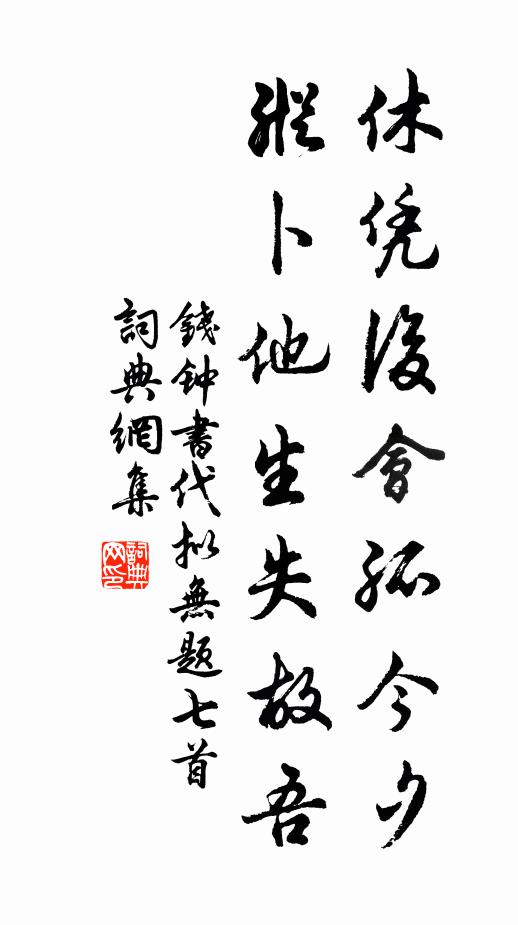 休凭後會孤今夕
縱卜他生失故吾
錢钟書代拟無题七首
詞典網集
詞典網印